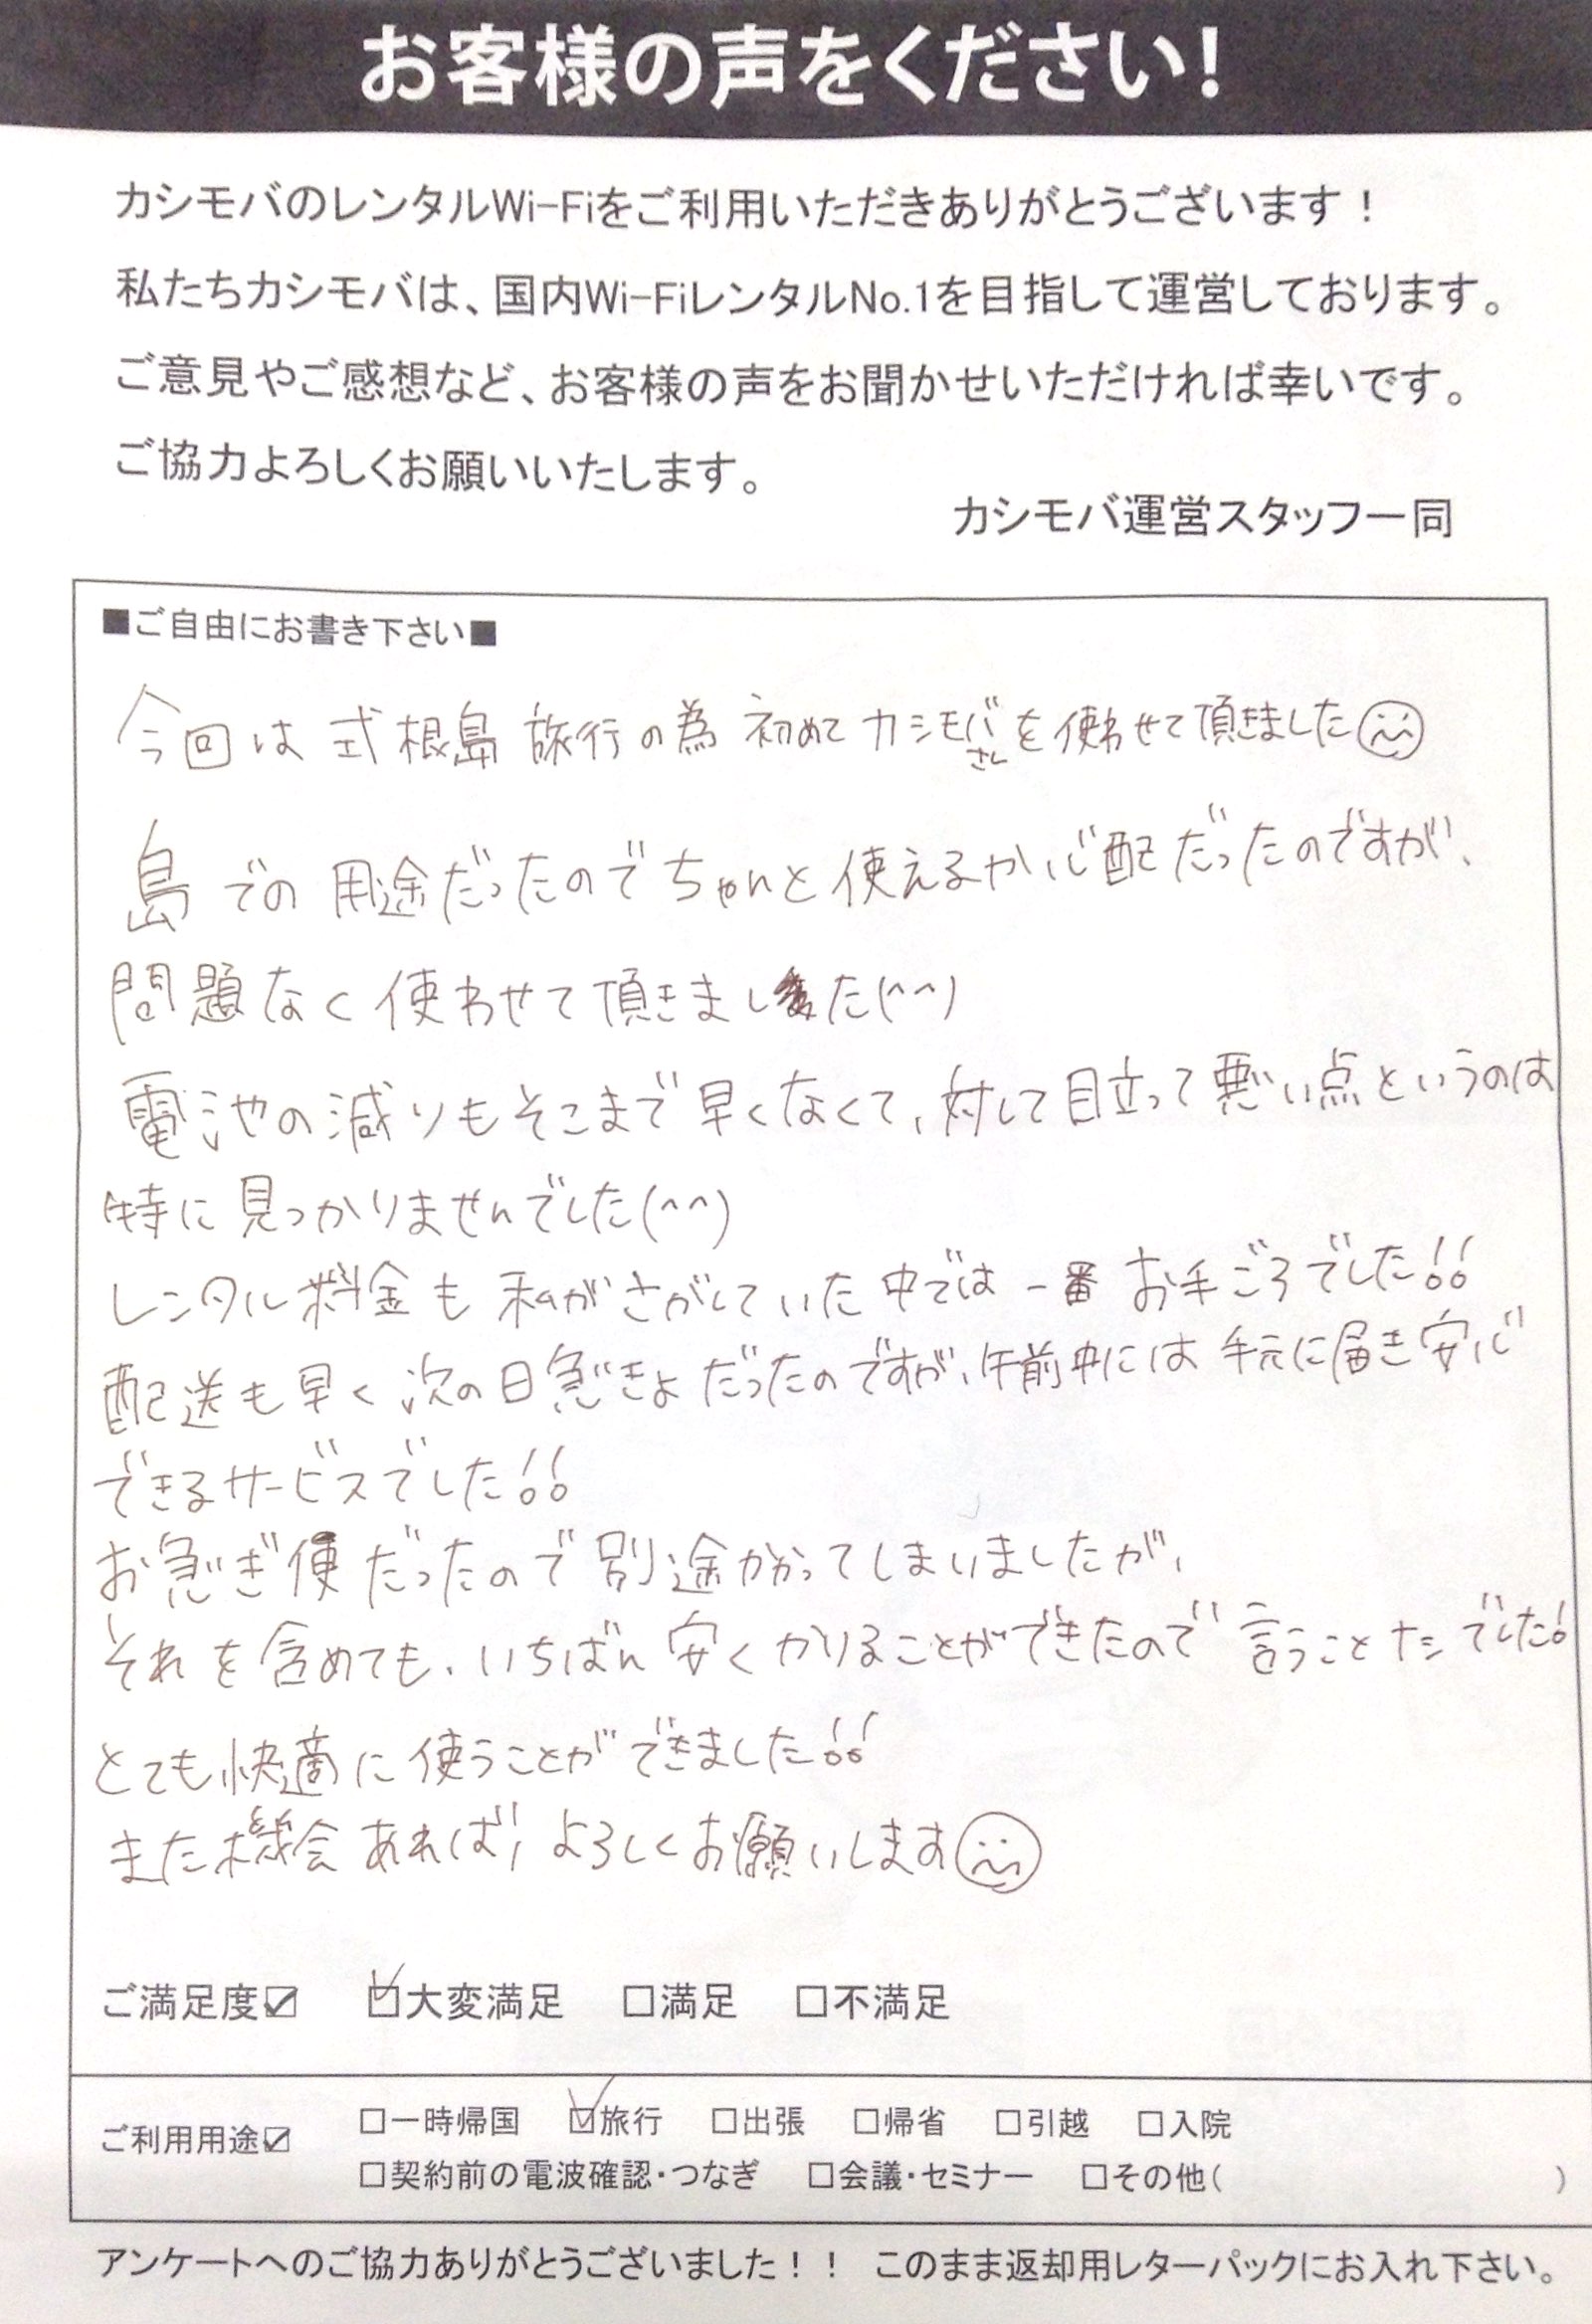 お客様の声をください！
カシモバのレンタルWi-Fiをご利用いただきありがとうございます！
私たちカシモバは、国内Wi-FiレンタルNo.1を目指して運営しております。
ご意見やご感想など、お客様の声をお聞かせいただければ幸いです。
ご協力よろしくお願いいたします。
カシモバ運営スタッフ一同
■ご自由にお書き下さい■
今回は式根島旅行の為初めてカシモバさんを使わせて頂きました
島での用途だったのでちゃんと使えるか心配だったのですが、
問題なく使わせて頂きました(^^)
電池の減りもそこまで早くなくて、対して目立って悪い点というのは
特に見つかりませんでした(^^)
レンタル料金も私がさがしていた中では一番お手ごろでした!!
配送も早く次の日急きょだったのですが、午前中には手元に届き安心
できるサービスでした!!
お急ぎ便だったので別途かかってしまいましたが、
それを含めても、いちばん安くかりることができたので言うことナシでした!
とても快適に使うことができました!!
また機会あれば、よろしくお願いします
ご満足度☑ ☑大変満足 □満足 □不満足
ご利用用途☑ □一時帰国 ☑旅行 □出張 □帰省 □引越 □入院
□契約前の電波確認・つなぎ □会議・セミナー □その他( )
アンケートへのご協力ありがとうございました！！ このまま返却用レターパックにお入れ下さい。